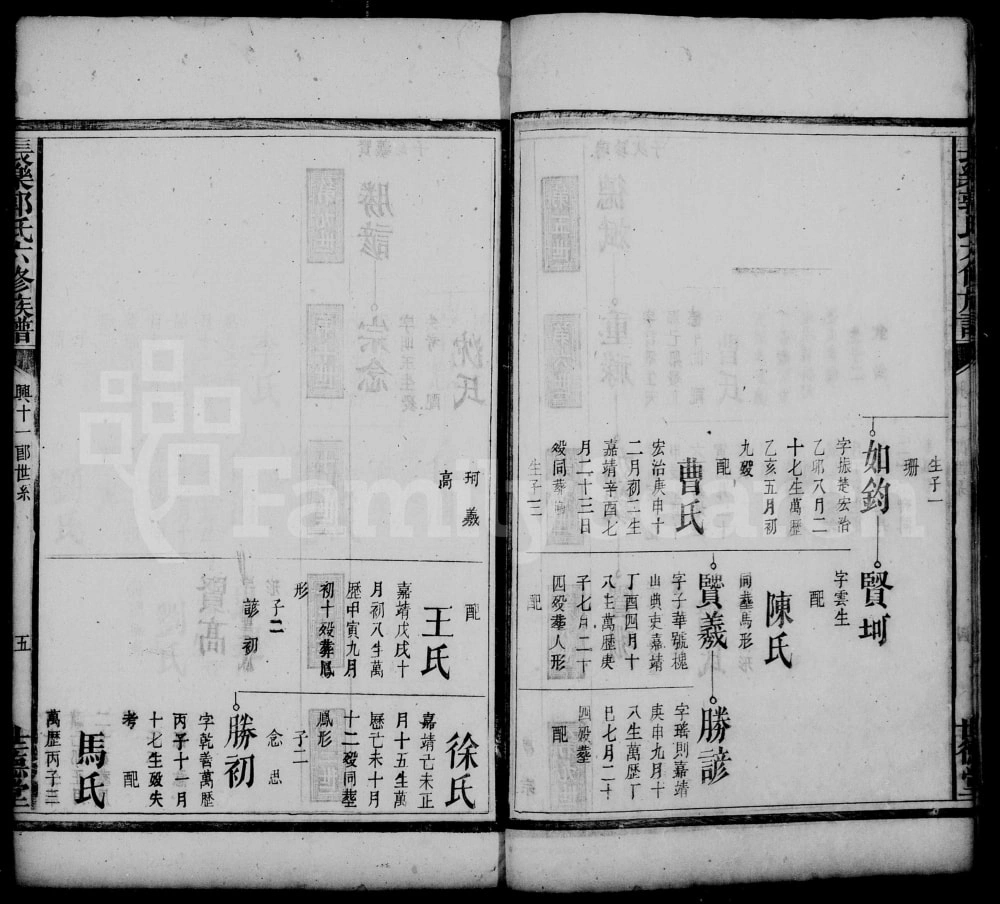 生子一
珊
如鈞
字振楚宏治
乙卯八月二
十七生萬歷
乙亥五月初
九殁
配
曹氏
宏治庚申十
二月初二生
嘉靖辛酉七
月二十三日
殁同葬
生子二
賢坷
字雲生
配
陳氏
同塟馬形
賢羲
字子華號槐
山典吏嘉靖
丁酉四月十
八生萬歷庚
子七月二十
四殁塟人形
配
勝諺
字瑀則嘉靖
庚申九月十
八生萬歷丁
巳七月二十
四殁塟
配
珂羲
高
配
王氏
嘉靖戊戌十
月初八生萬
歷甲寅九月
初十殁葬鳳
形
子二
諺初
徐氏
嘉靖己未正
月十五生萬
歷己未十月
十二殁同塟
鳳形
子二
念思
勝初
字乾善萬歷
丙子十一月
十七生殁失
考
配
馬氏
萬歷丙子三
長樂郭氏六修族譜
興十一郎世系
五